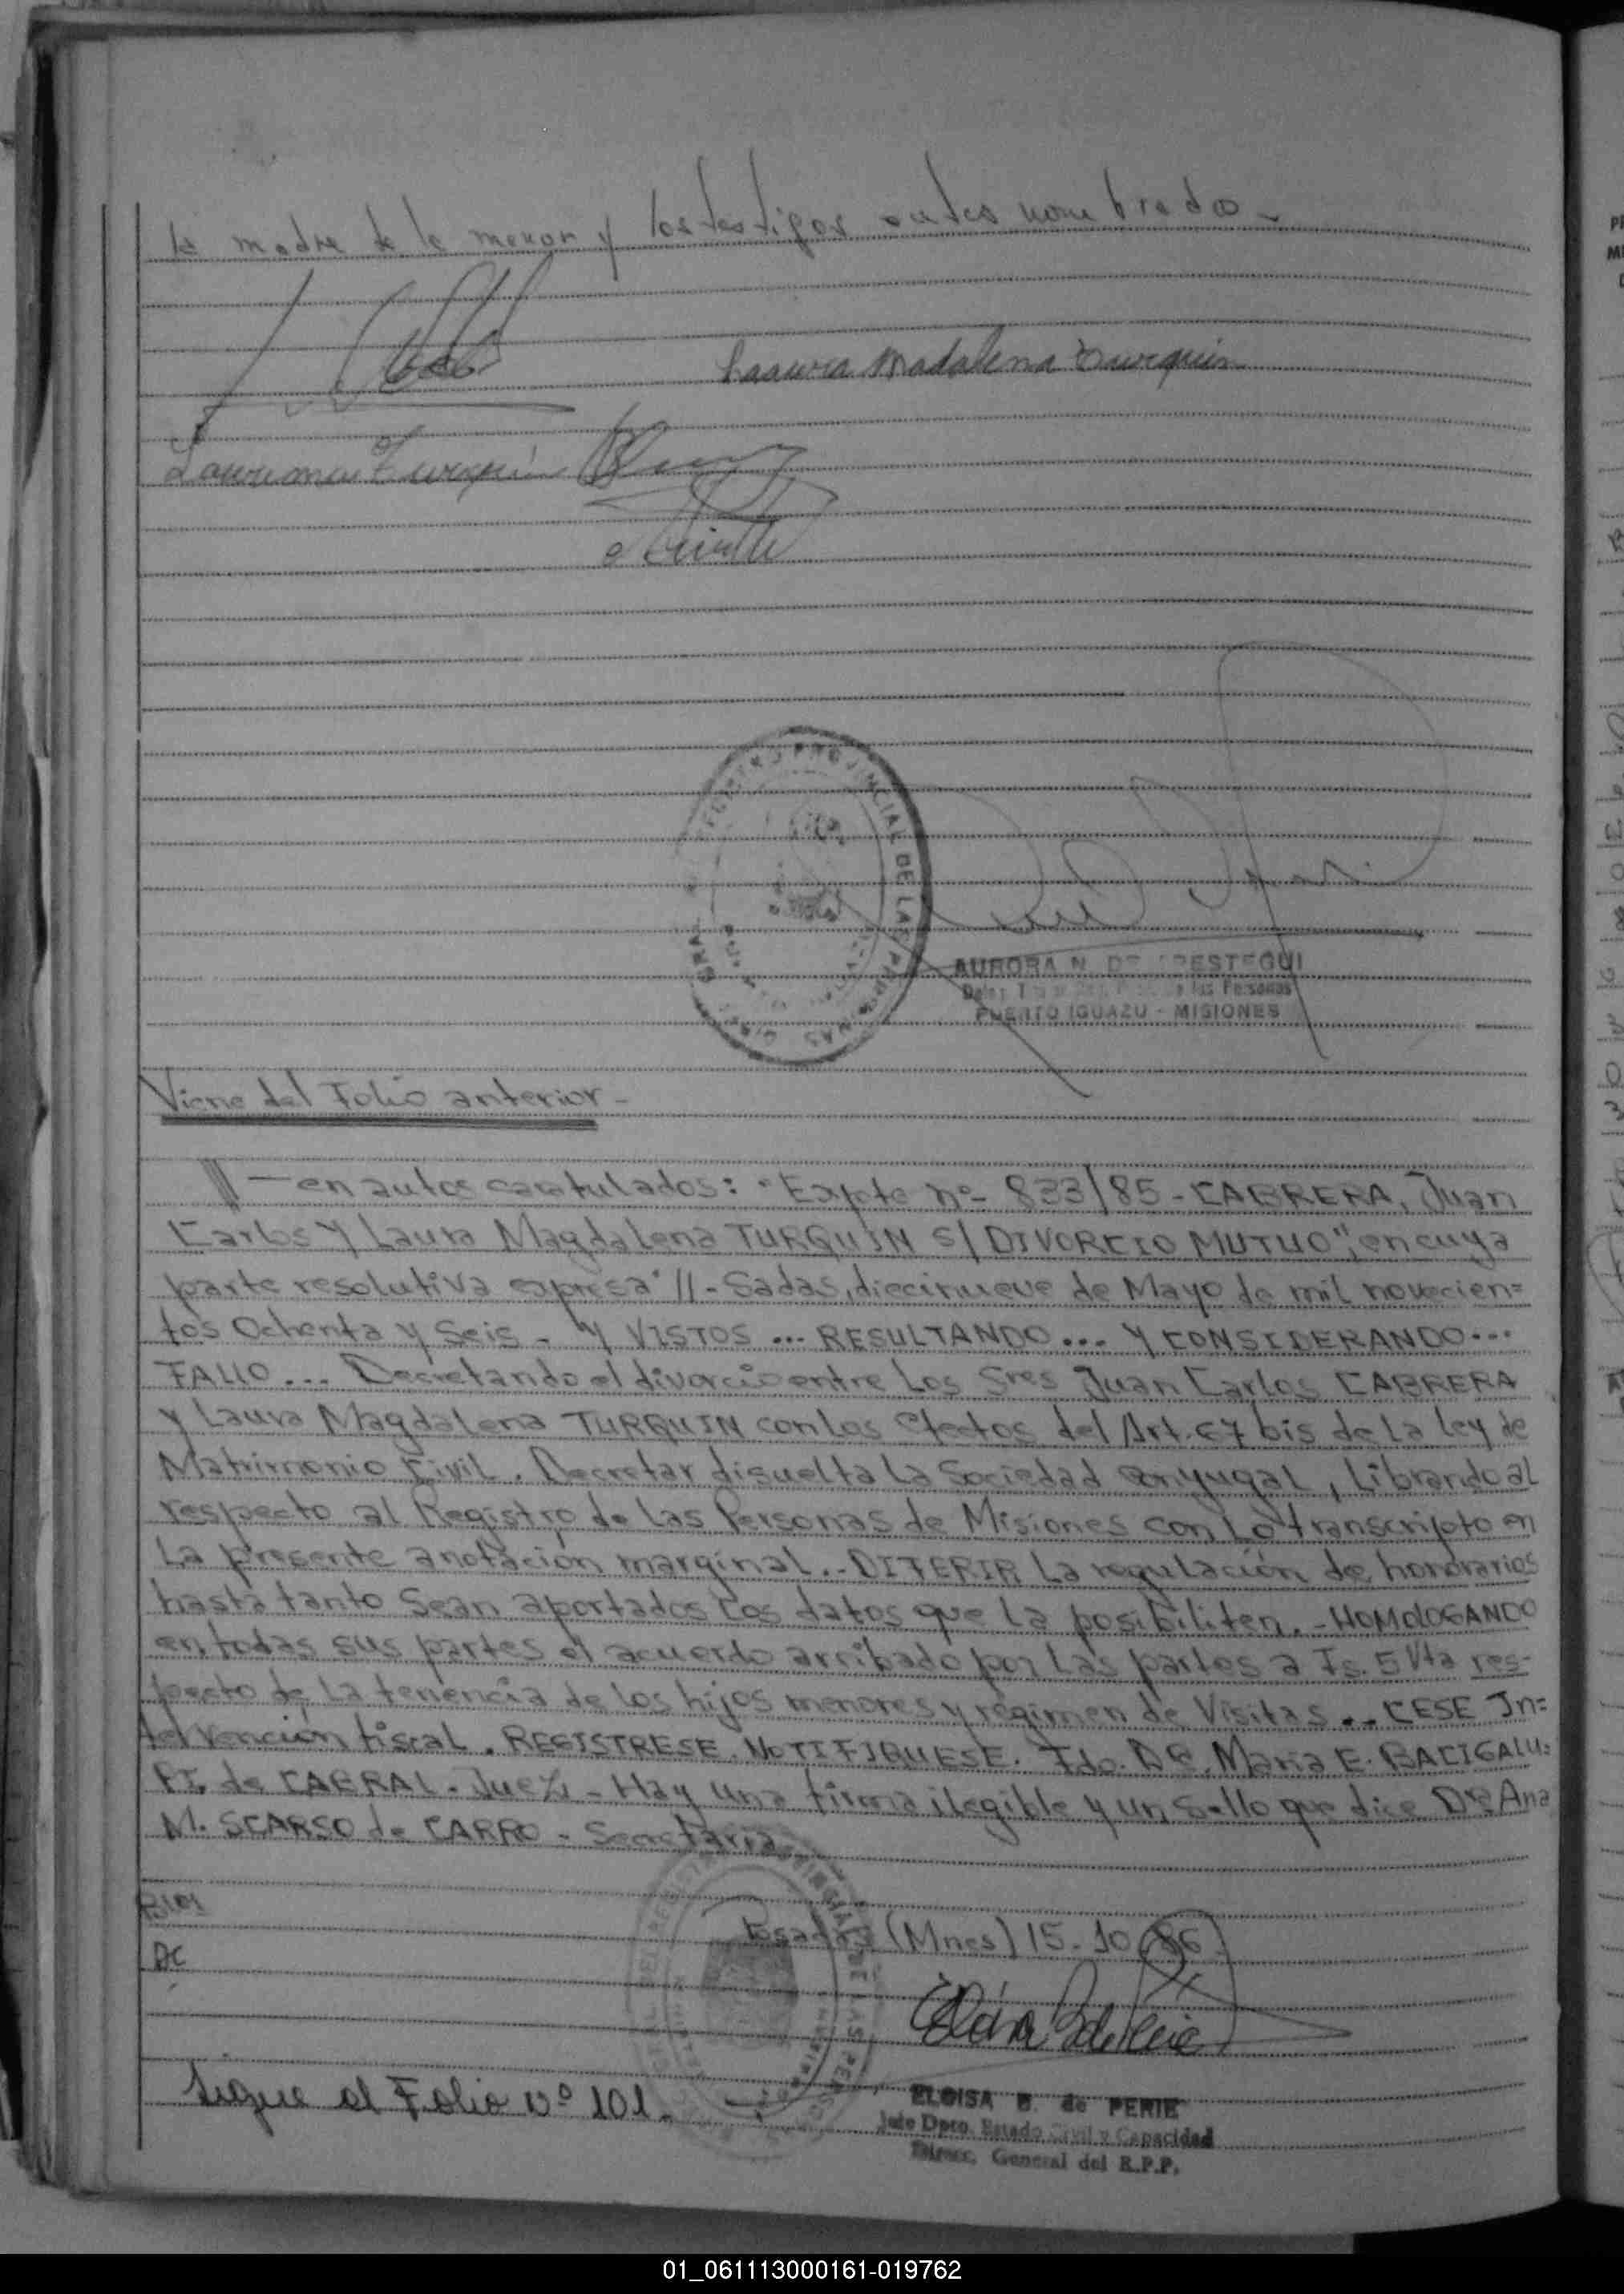 la madre de la menor y los testigos antes nombrados -
Laaura Madalena Turquin
Turquin
REGISTRO PROVINCIAL DE LAS PERSONAS
AURORA N. DE APESTEGUI
las Personas
PUERTO IGUAZU - MISIONES
Viene del Folio anterior -
//// — en autos caratulados: "Expte nº- 823/85 - CABRERA, Juan
Carlos y Laura Magdalena TURQUIN S/ DIVORCIO MUTUO", en cuya
parte resolutiva expresa "// - Sadas, diecinueve de Mayo de mil novecien=
tos Ochenta y Seis - Y VISTOS ... RESULTANDO ... Y CONSIDERANDO ...
FALLO ... Decretando el divorcio entre los Sres Juan Carlos CABRERA
y Laura Magdalena TURQUIN con los efectos del Art. 67 bis de la ley de
Matrimonio Civil. Decretar disuelta la Sociedad conyugal, librando al
respecto al Registro de las Personas de Misiones con lo transcripto en
la presente anotación marginal. - DIFERIR la regulación de honorarios
hasta tanto sean aportados los datos que la posibiliten. - HOMOLOGANDO
en todas sus partes el acuerdo arribado por las partes a Fs. 5 Vta res-
pecto de la tenencia de los hijos menores y régimen de Visitas .. CESE In=
tervención fiscal. REGISTRESE. NOTIFIQUESE. Fdo. Dra. Maria E. BACIGALU=
PI de CABRAL - Juez - Hay una firma ilegible y un sello que dice Dra Ana
M. SCARSO de CARRO - Secretaria
Posadas (Mnes) 15-10-86
DC
Sigue al Folio Nº 101.
ELOISA B. de PERIE
Jefe Dpto. Estado Civil y Capacidad
Direcc. General del R.P.P.
01_061113000161-019762